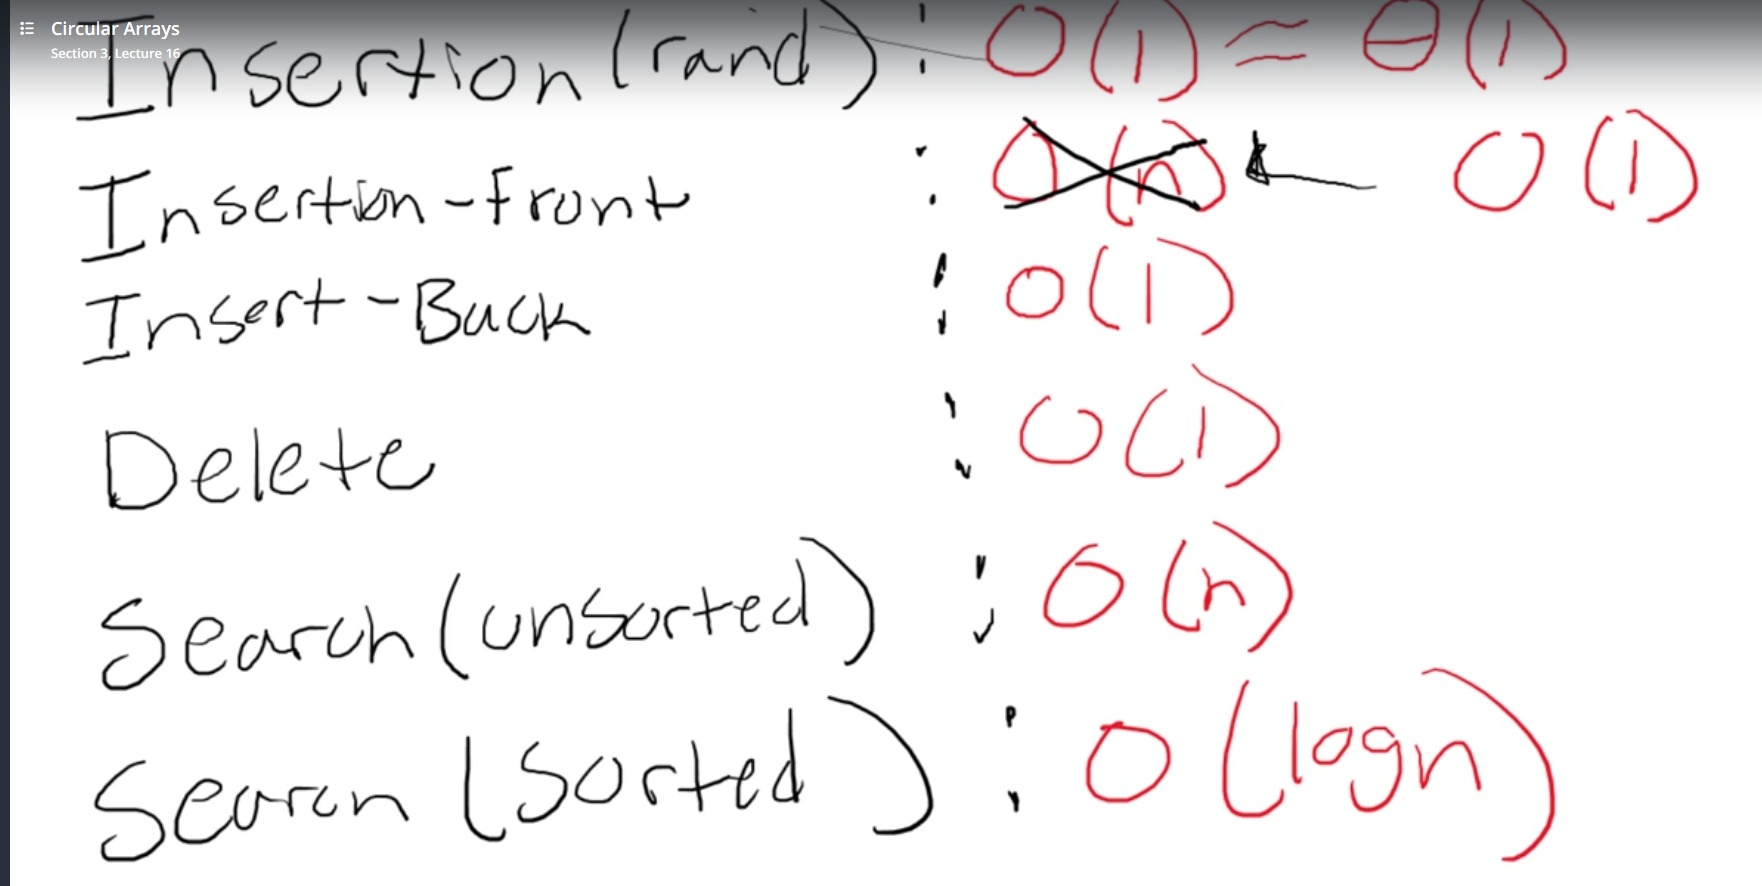 Circular Arrays
Section 3, Lecture 16
Insertion (rand) : O(1) ≈ θ(1)
Insertion-Front : O(n) O(1)
Insert-Back : O(1)
Delete : O(1)
Search (unsorted) : O(n)
Search (sorted) : O(logn)